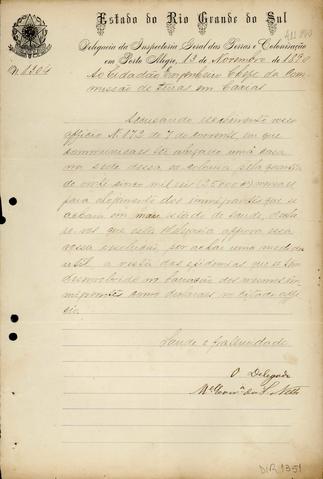 411 890
Estado do Rio Grande do Sul
Delegacia da Inspectoria Geral das Terras e Colonisação
em Porto Alegre, 13 de Novembro de 1890
Nº
Ao Cidadão Engenheiro Chefe da Com-
missão de Terras em Caxias
Accusando recebimento vosso
officio N. 173 de 7 do corrente em que
communicaes ter alugado uma casa
na séde dessa ex colonia pela quantia
de vinte cinco mil reis mensaes
para alojamento dos immigrantes que se
acham em máu estado de saude, decla-
ro-vos que esta Delegacia approva essa
vossa resolução, por achar uma medida
util, a vista das epidemias que se tem
desenvolvido no barracão dos mesmos im-
migrantes como declaraes no citado offi-
cio.
Saude e fraternidade
O Delegado
DIR 1351